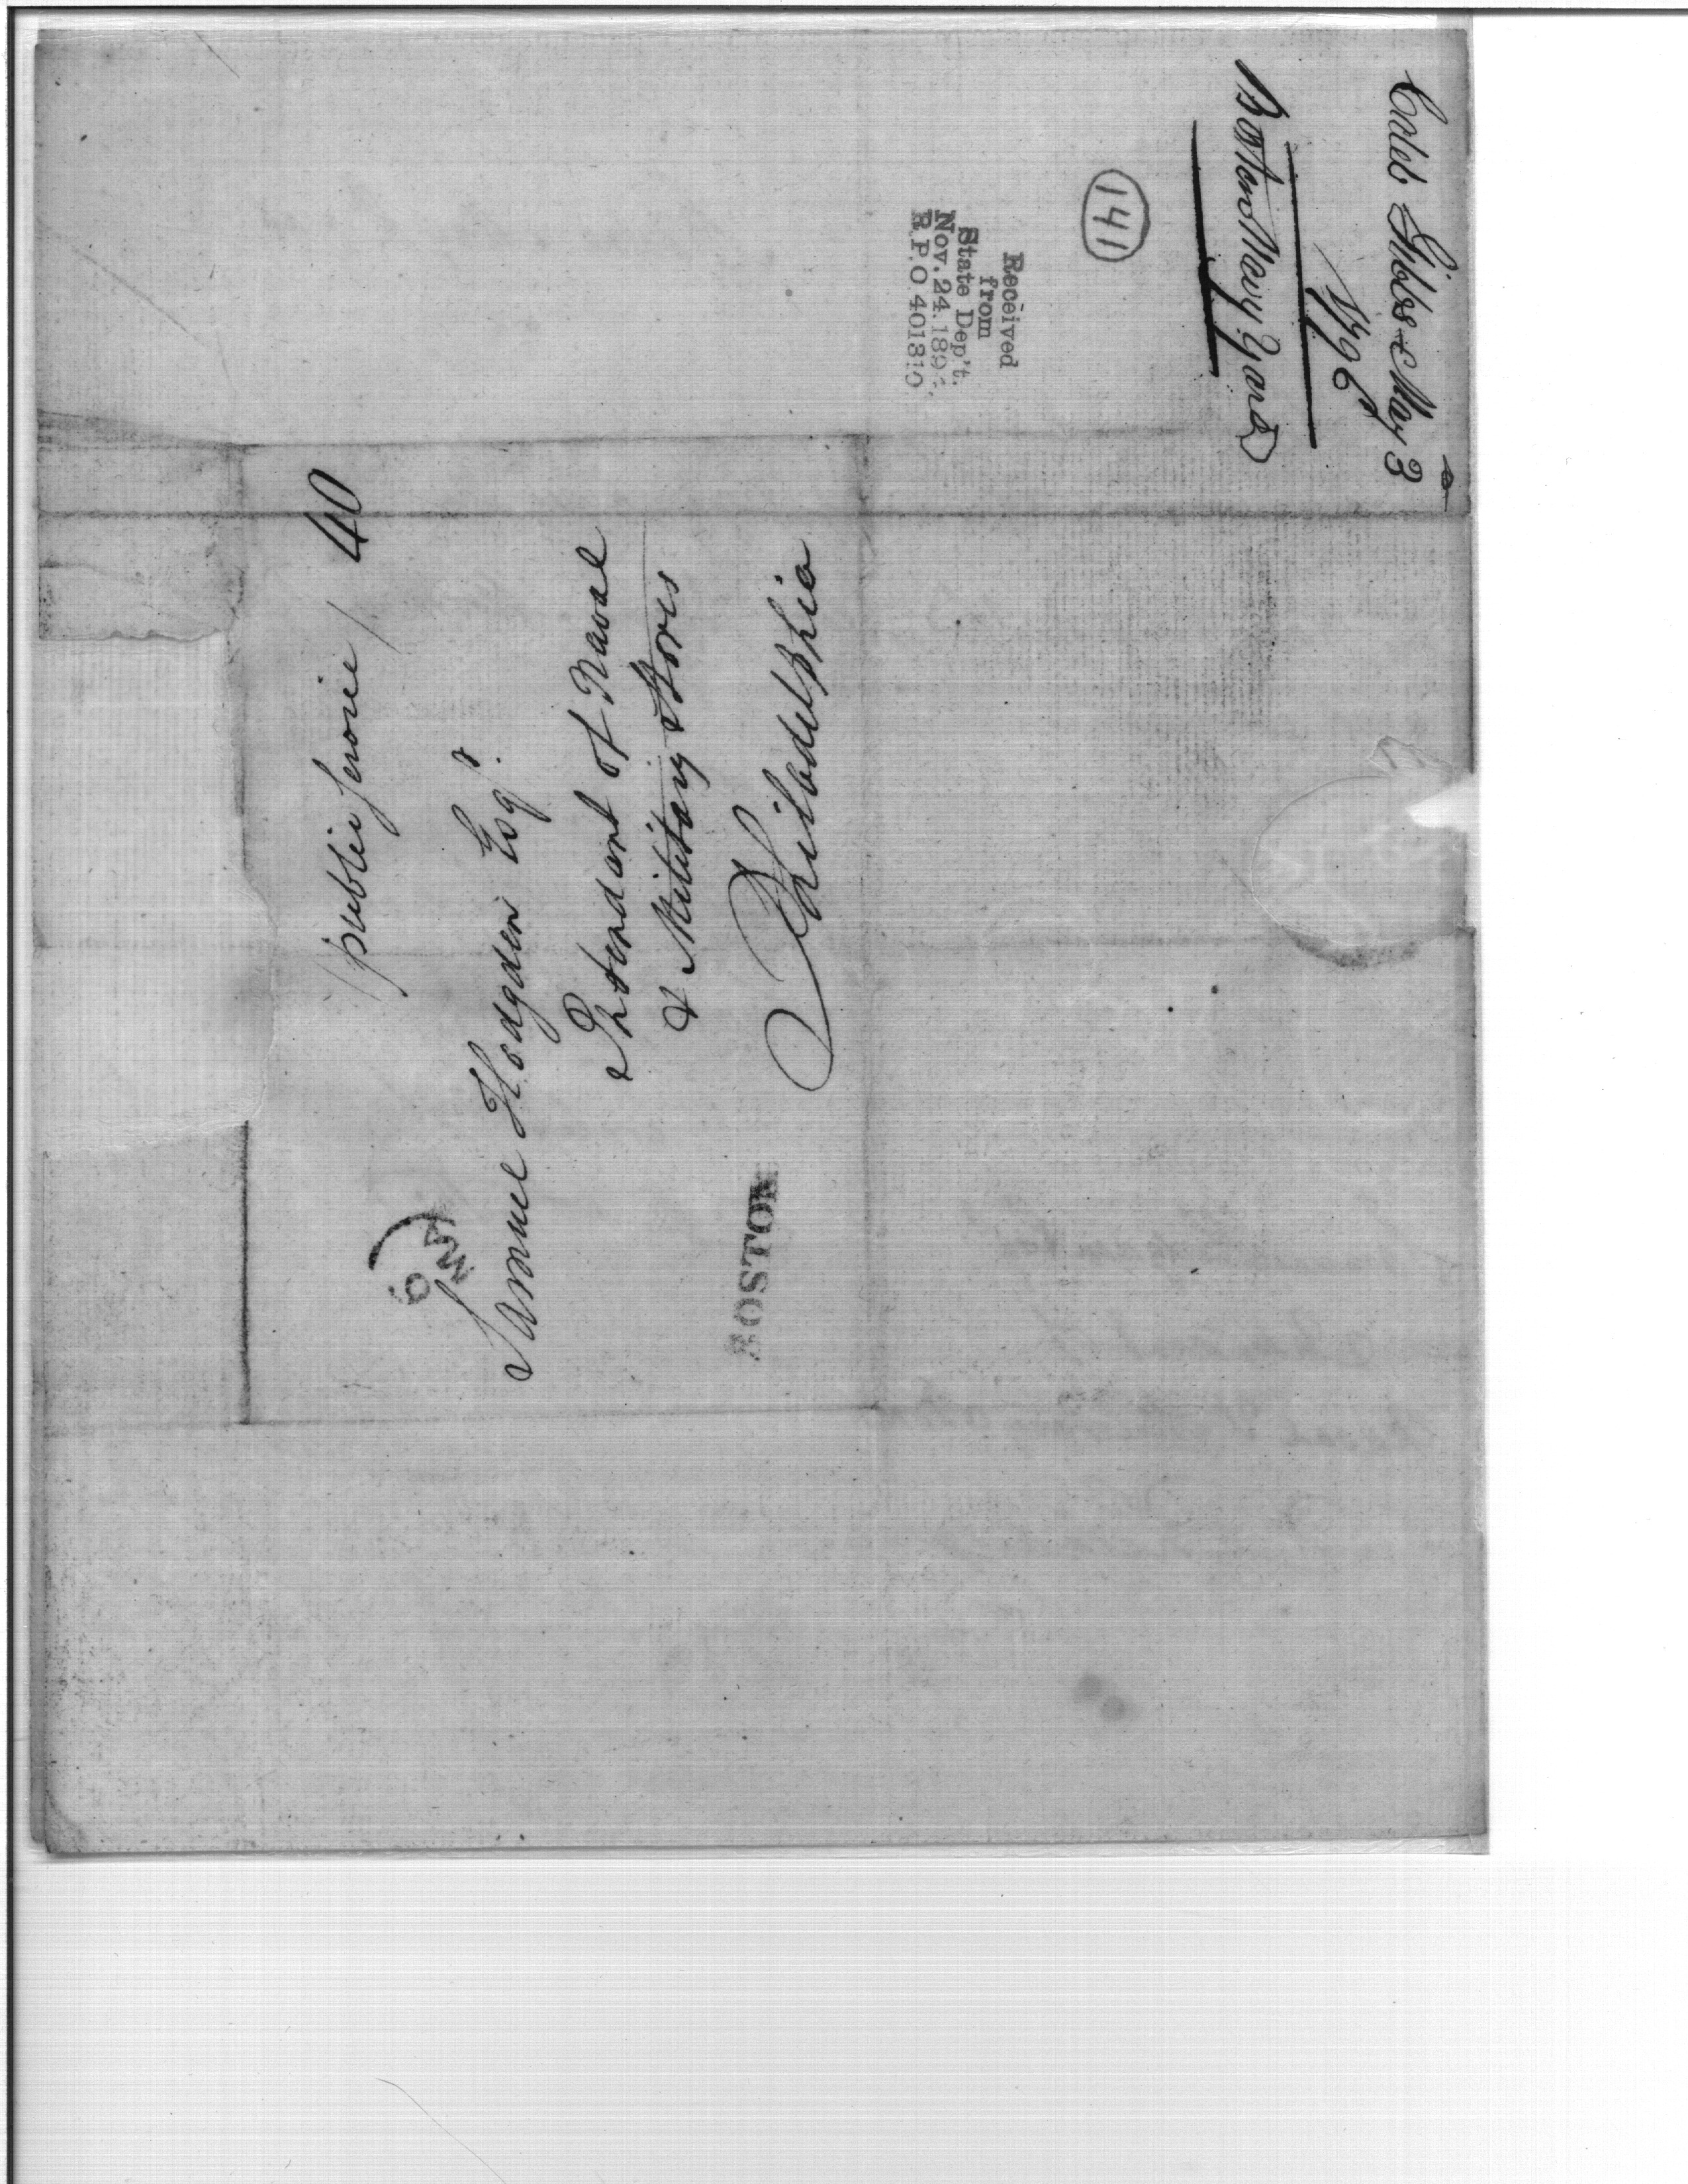 Caleb Gibbs May 3
1796
Boston Navy Yard
141
Received
from
State Dep't.
Nov. 24. 189
R.P.O 401310
public service / 40
6 MY
Samuel Hodgden Esqr.
Intendant of Naval
& Military Stores
Philadelphia
BOSTON